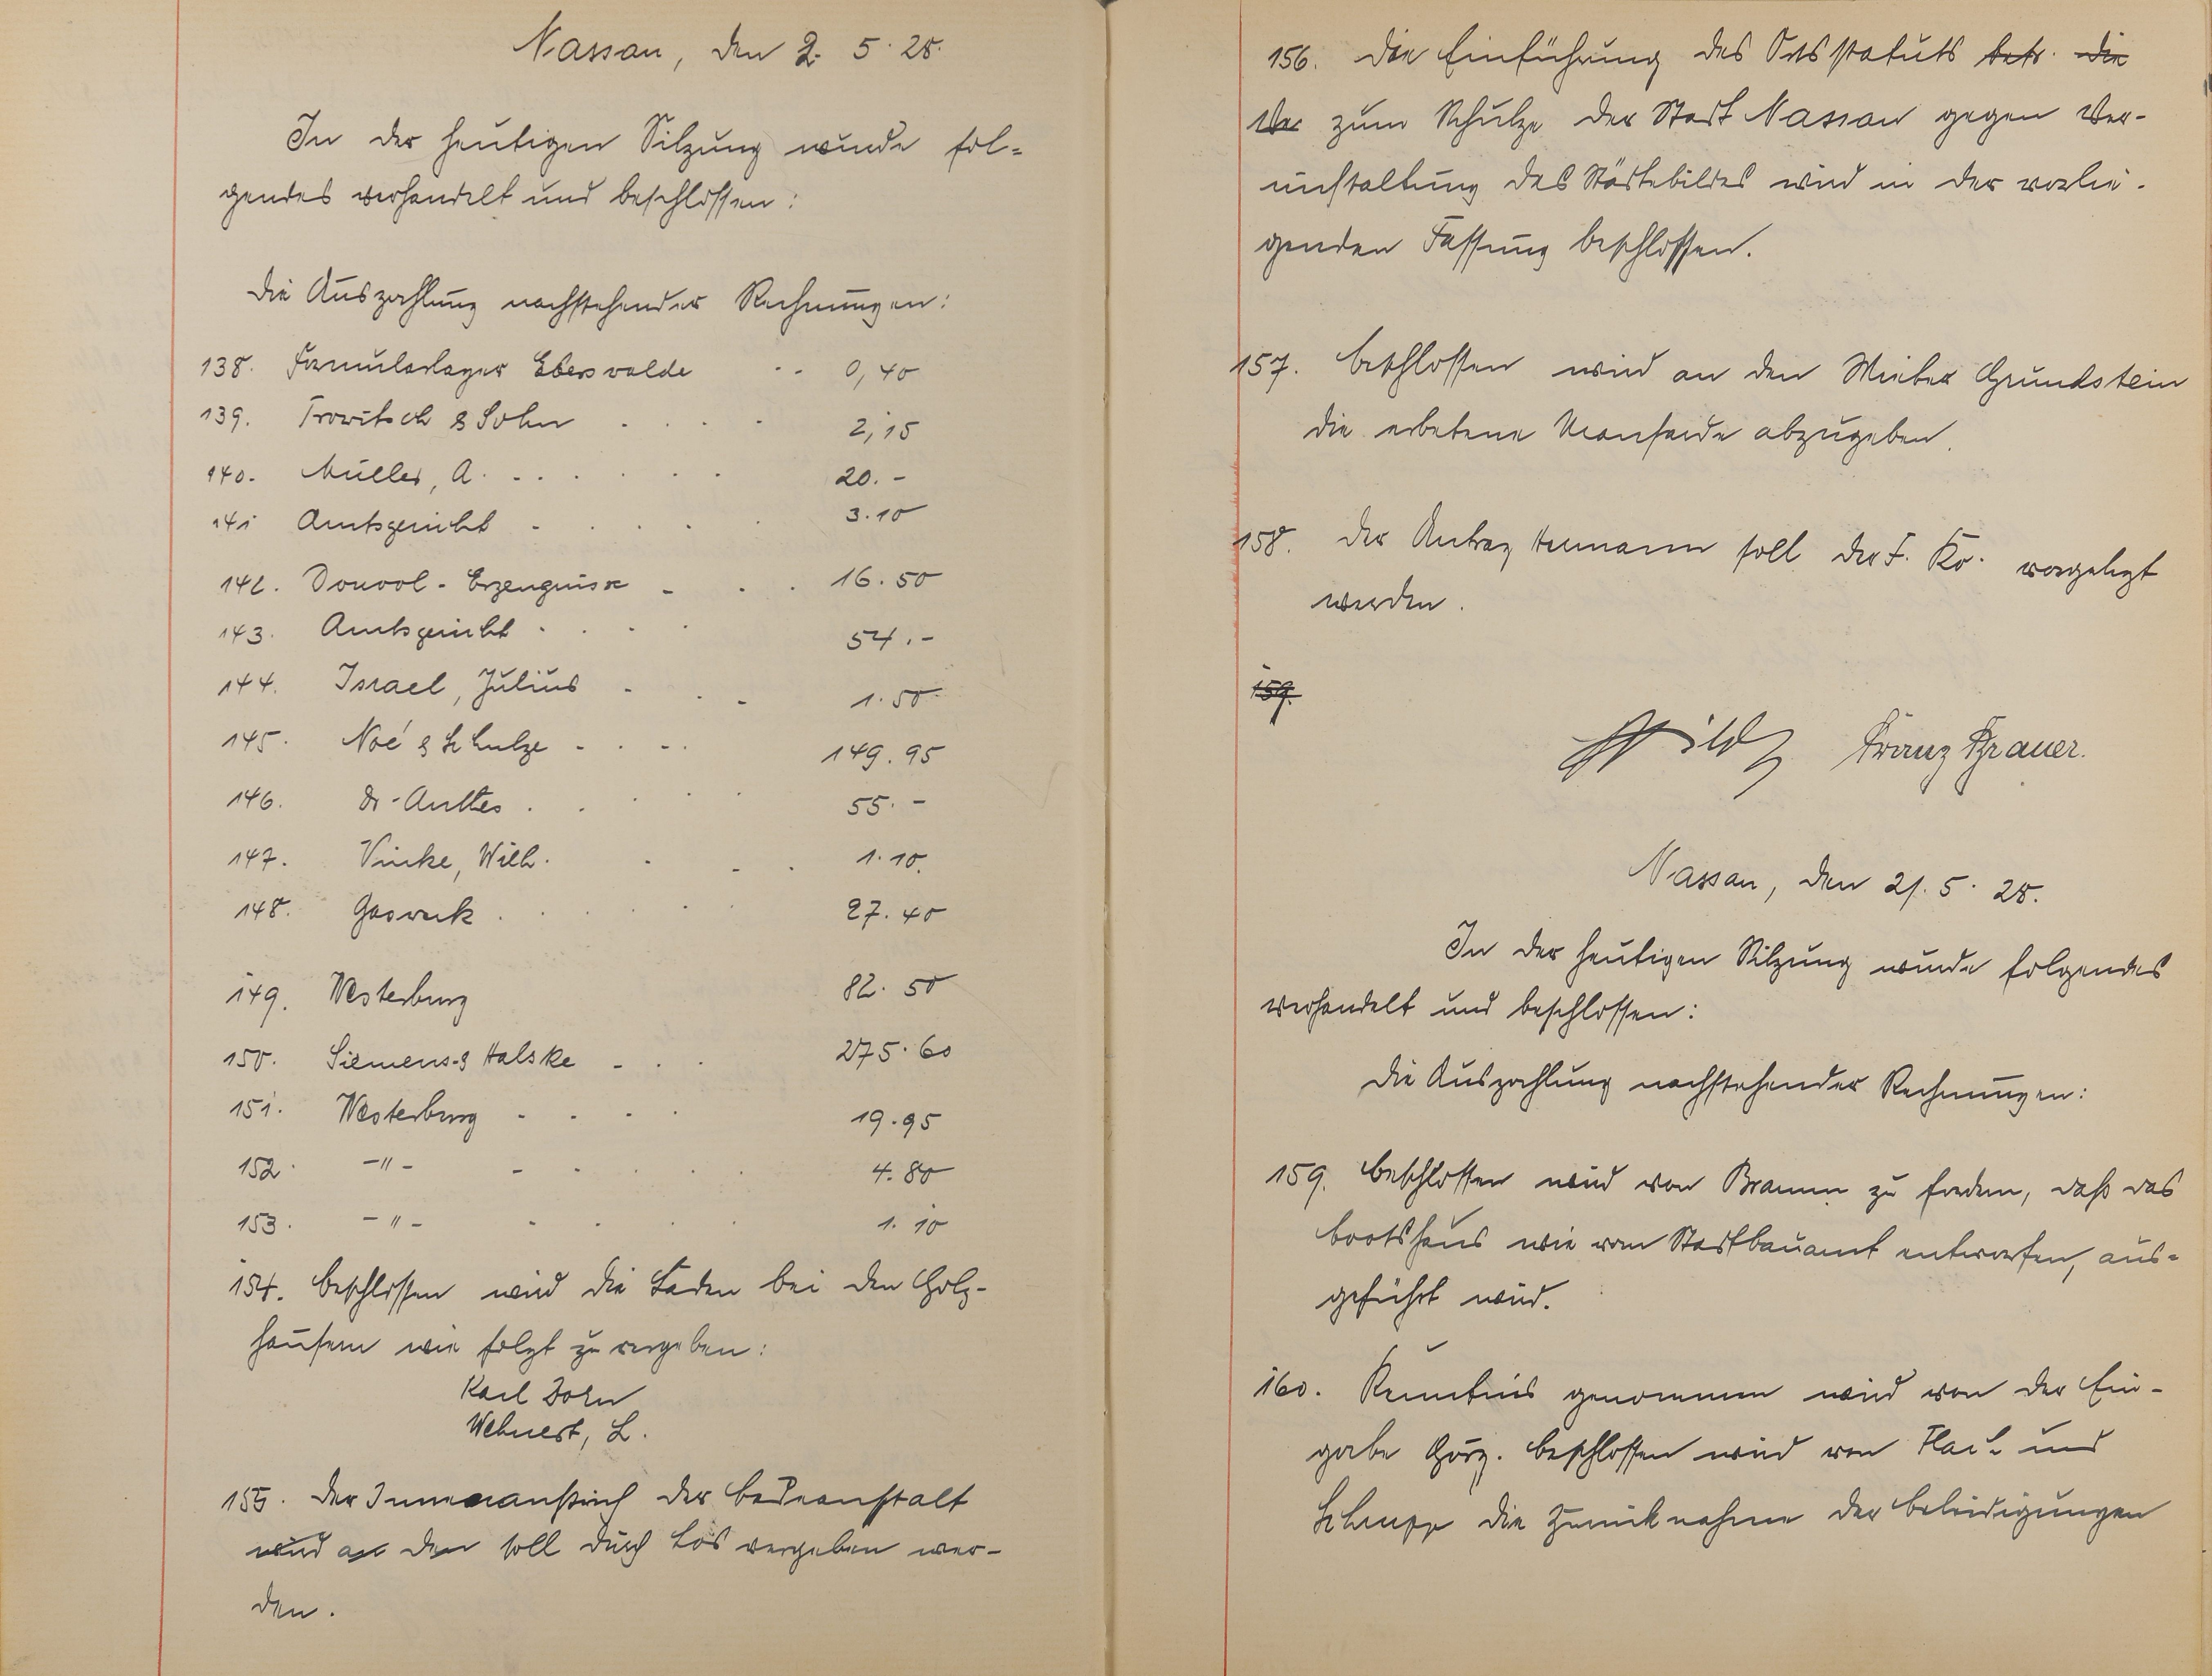 Nassau, den 2. 5. 28.
In der heutigen Sitzung wurde fol-
gendes verhandelt und beschlossen:
Die Auszahlung nachstehender Rechnungen:
138. Formularlager Eberswalde 0,40
139. Trowitsch & Sohn 2,15
140. Müller, A. 20.-
141 Amtsgericht 3.10
142. Donvol-Erzeugnisse 16.50
143. Amtsgericht 54.-
144. Israel, Julius 1.50
145. Noé & Schulze 149.95
146. Dr. Anthes 55.-
147. Vinke, Wilh. 1.10.
148. Gaswerk 27.40
149. Westerburg 82.50
150. Siemens & Halske 275.60
151. Westerburg 19.95
152. -"- 4.80
153. -"- 1.10
154. Beschlossen wird die Läden bei den Holz-
häusern wie folgt zu vergeben:
Karl Dohn
Wehnert, L.
155. Der Innenanstrich der Badeanstalt
wird an den soll durch Los vergeben wer-
den.
156. Die Einführung des Ortsstatuts betr. die
Ver zum Schutze der Stadt Nassau gegen Ver-
unstaltung des Städtebildes wird in der vorlie-
genden Fassung beschlossen.
157. Beschlossen wird an den Mieter Grundstein
die erbetene Mansarde abzugeben.
158. Der Antrag Hermann soll der F. Ko. vorgelegt
werden.
159.
Franz Brauer.
Nassau, den 21. 5. 28.
In der heutigen Sitzung wurde folgendes
verhandelt und beschlossen:
Die Auszahlung nachstehender Rechnungen:
159. Beschlossen wird von Braun zu fordern, daß das
Bootshaus wie vom Stadtbauamt entworfen, aus-
geführt wird.
160. Kenntnis genommen wird von der Ein-
gabe Görz. Beschlossen wird von und
Schupp die Zurücknahme der Beleidigungen